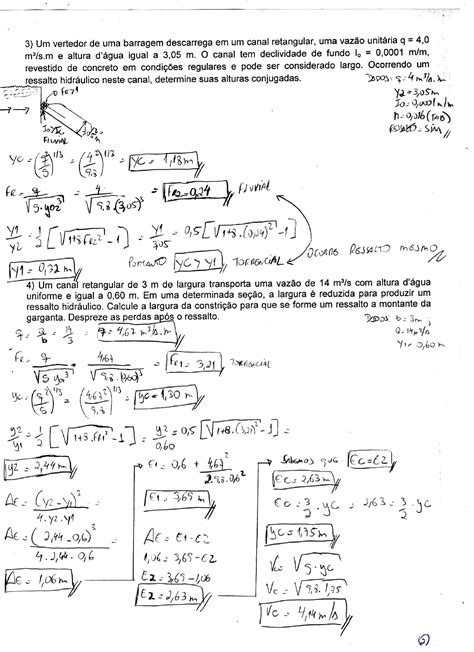 3) Um vertedor de uma barragem descarrega em um canal retangular, uma vazão unitária q = 4,0
m³/s.m e altura d'água igual a 3,05 m. O canal tem declividade de fundo I₀ = 0,0001 m/m,
revestido de concreto em condições regulares e pode ser considerado largo. Ocorrendo um
ressalto hidráulico neste canal, determine suas alturas conjugadas.
DADOS: q=4m³/s.m
y2=3,05m
I0=0,0001 m/m
n=0,016 (TAB)
RESSALTO - SIM
FR>1
I0<IC
FLUVIAL
yc=(q²/g)^1/3 = (4²/9,8)^1/3 = yc=1,18m
FR= q/√g.y02³ = 4/√9,8.(3,05)³ = FR2=0,24 FLUVIAL
y1/y2 = 1/2 [√1+8FR2² -1] = y1/3,05 = 0,5[√1+8.(0,24)² -1]
y1=0,32m PORTANTO yc>y1, TORRENCIAL OCORRE RESSALTO MESMO
4) Um canal retangular de 3 m de largura transporta uma vazão de 14 m³/s com altura d'água
uniforme e igual a 0,60 m. Em uma determinada seção, a largura é reduzida para produzir um
ressalto hidráulico. Calcule a largura da constrição para que se forme um ressalto a montante da
garganta. Despreze as perdas após o ressalto.
DADOS: b=3m;
Q=14m³/s
y1=0,60m
q= Q/b = 14/3 = q=4,67 m³/s.m
FR= q/√g y0³ = 4,67/√9,8.(0,60)³ = FR1=3,21, TORRENCIAL
yc=(q²/g)^1/3 = (4,67²/9,8)^1/3 = yc=1,30m
y2/y1 = 1/2 [√1+8.FR1² -1] = y2/0,60 = 0,5[√1+8.(3,21)² -1] =
y2=2,44m
ΔE = (y2-y1)³/4.y2.y1
ΔE = (2,44-0,6)³/4.2,44.0,6
ΔE=1,06m
E1=0,6+ 4,67²/2.9,8.0,6²
E1=3,69m
ΔE=E1-E2
1,06=3,69-E2
E2=3,69-1,06
E2=2,63m
SABEMOS QUE EC=E2
EC=2,63m
EC=3/2.yc = 2,63=3/2.yc
yc=1,75m
Vc=√g.yc
Vc=√9,8.1,75
Vc=4,14m/s